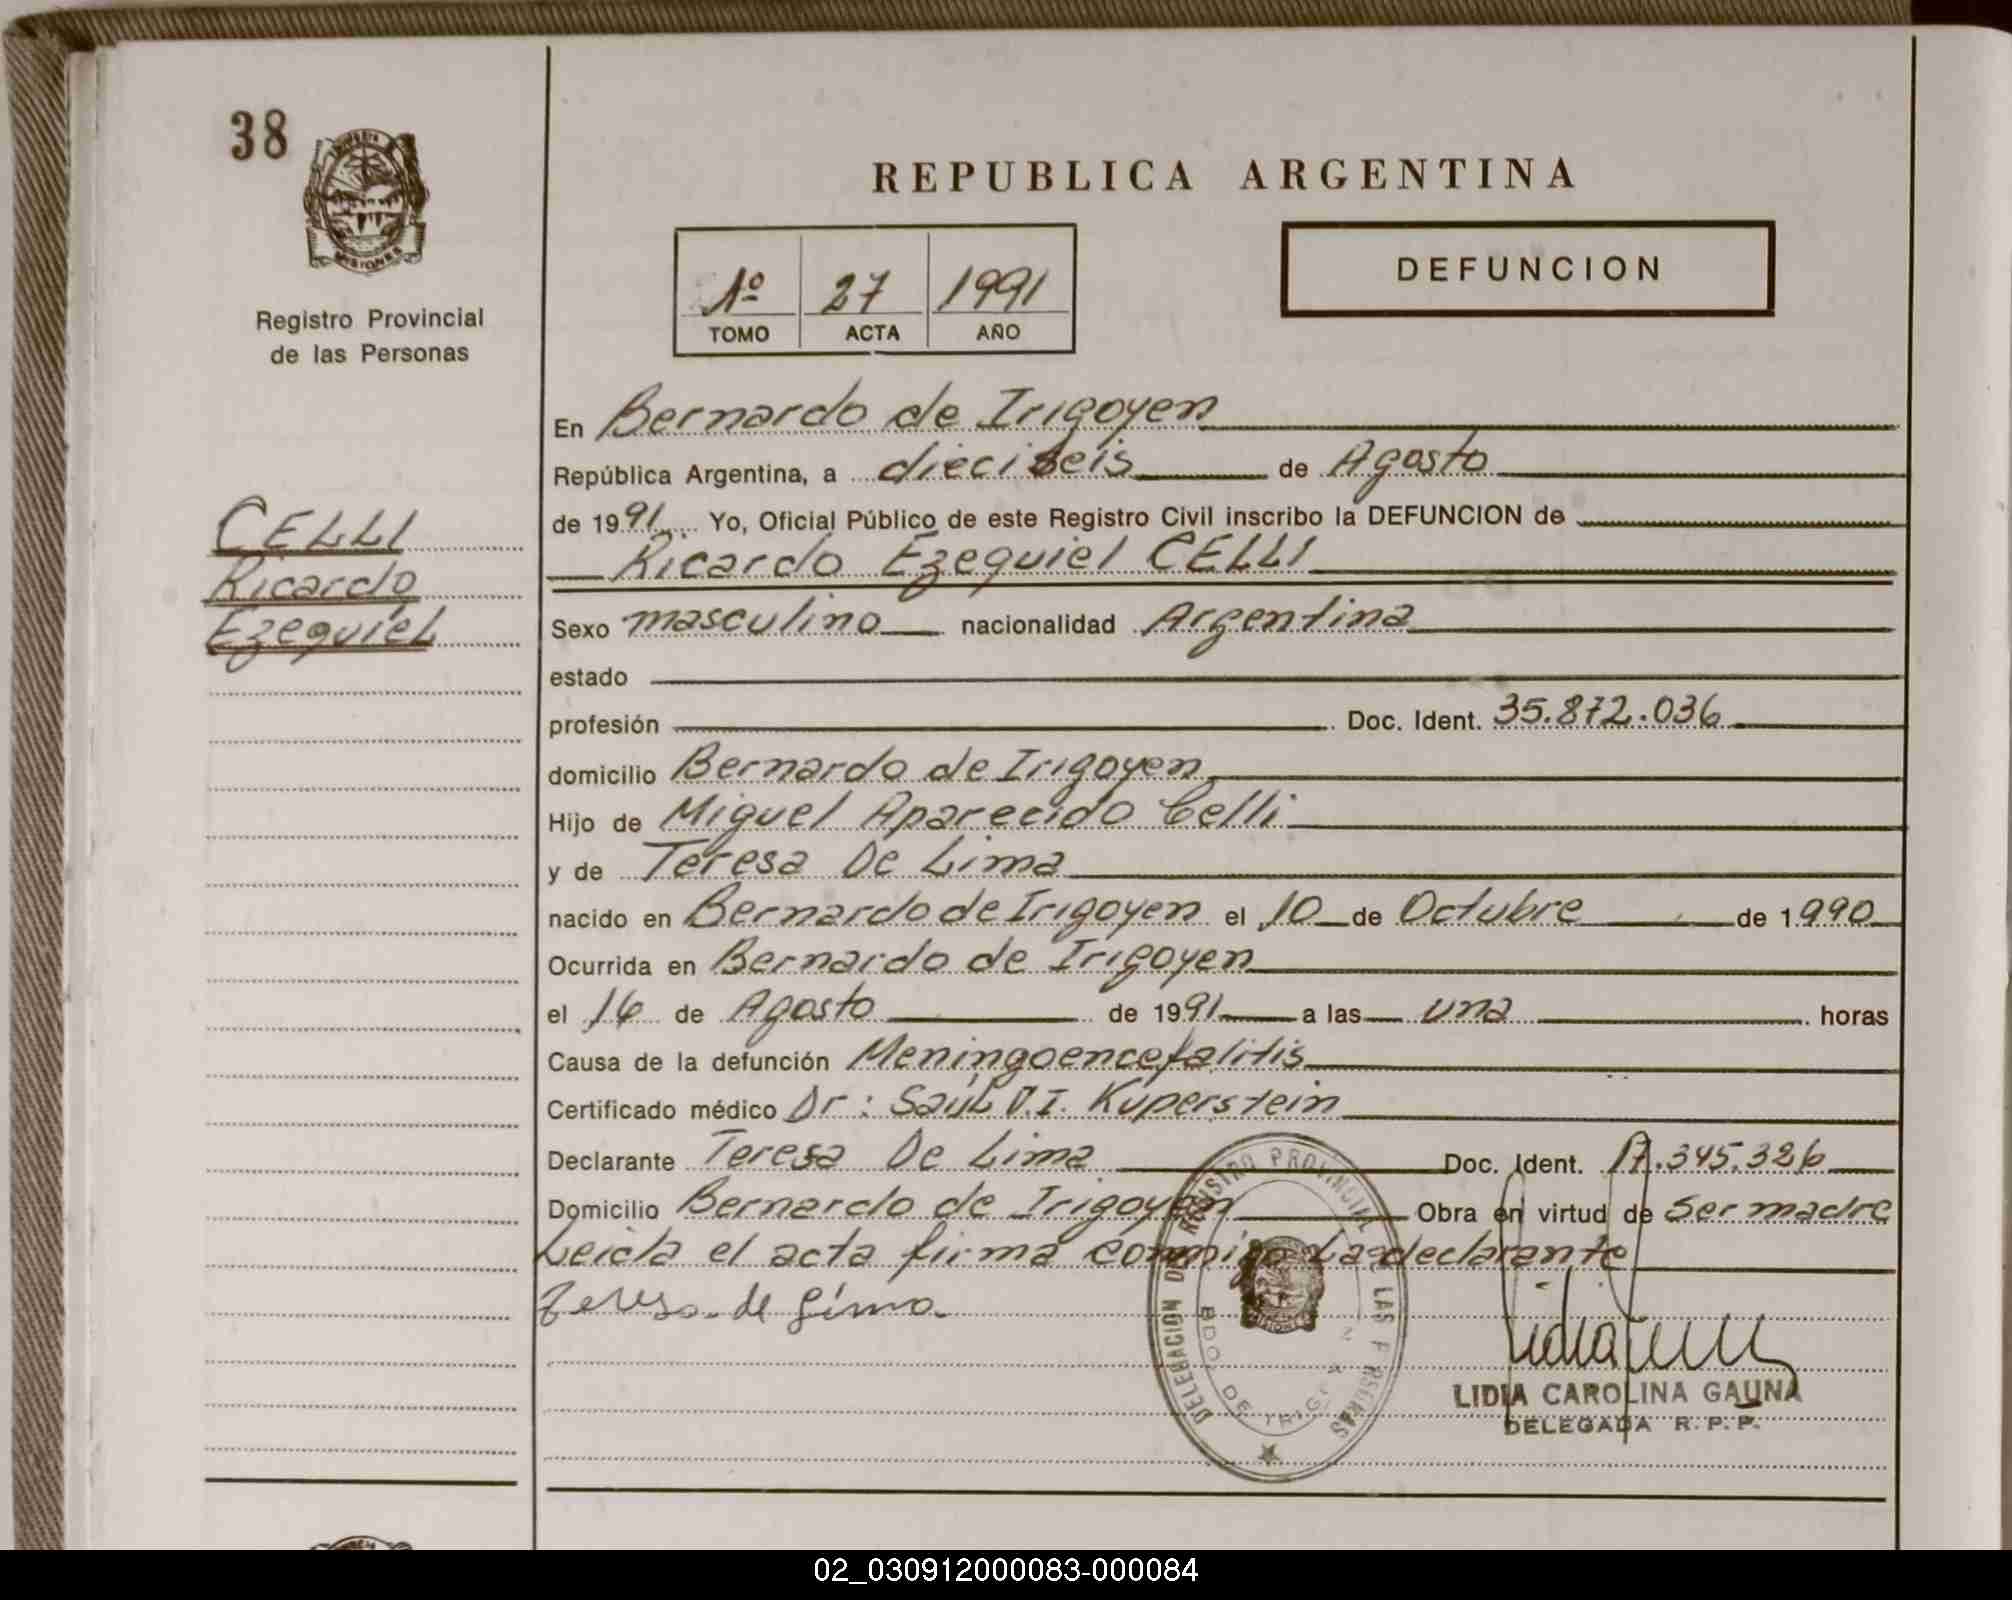 38
MISIONES
Registro Provincial
de las Personas
CELLI
Ricardo
Ezequiel
REPUBLICA ARGENTINA
1º 27 1991
TOMO ACTA AÑO
DEFUNCION
En Bernardo de Irigoyen
República Argentina, a dieciseis de Agosto
de 1991 Yo, Oficial Público de este Registro Civil inscribo la DEFUNCION de
Ricardo Ezequiel CELLI
Sexo masculino nacionalidad Argentina
estado
profesión Doc. Ident. 35.872.036
domicilio Bernardo de Irigoyen
Hijo de Miguel Aparecido Celli
y de Teresa De Lima
nacido en Bernardo de Irigoyen el 10 de Octubre de 1990
Ocurrida en Bernardo de Irigoyen
el 16 de Agosto de 1991 a las una horas
Causa de la defunción Meningoencefalitis
Certificado médico Dr: Saúl D.I. Kuperstein
Declarante Teresa De Lima Doc. Ident. 17.345.326
Domicilio Bernardo de Irigoyen Obra en virtud de Ser madre
Leida el acta firma conmigo La declarante
Teresa de Lima
DELEGACION DEL REGISTRO PROVINCIAL DE LAS PERSONAS
BDO. DE IRIGOYEN
LIDIA CAROLINA GAUNA
DELEGADA R.P.P.
02_030912000083-000084